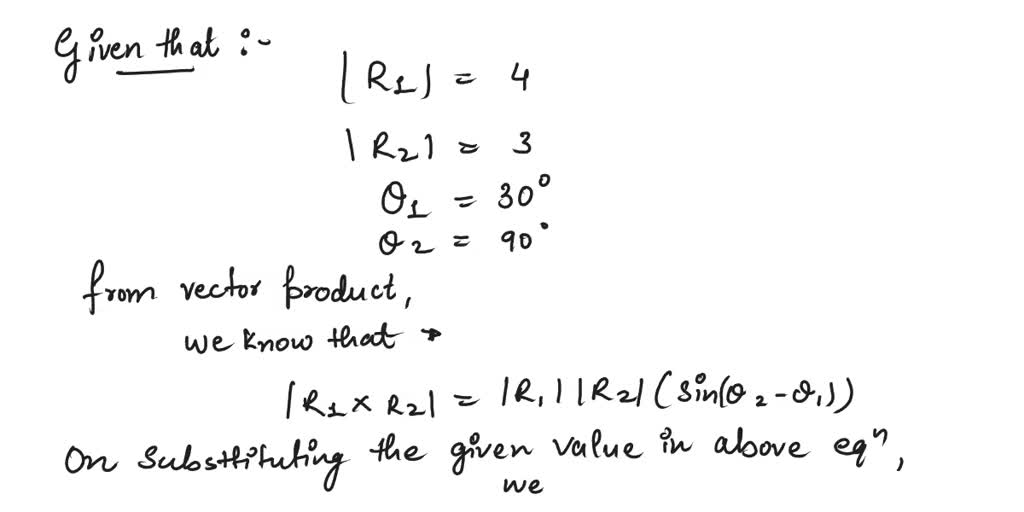 Given that :-
|R1| = 4
|R2| = 3
θ1 = 30°
θ2 = 90°
from vector product,
we know that →
|R1 × R2| = |R1| |R2| (sin(θ2-θ1))
On substituting the given value in above eqⁿ,
we